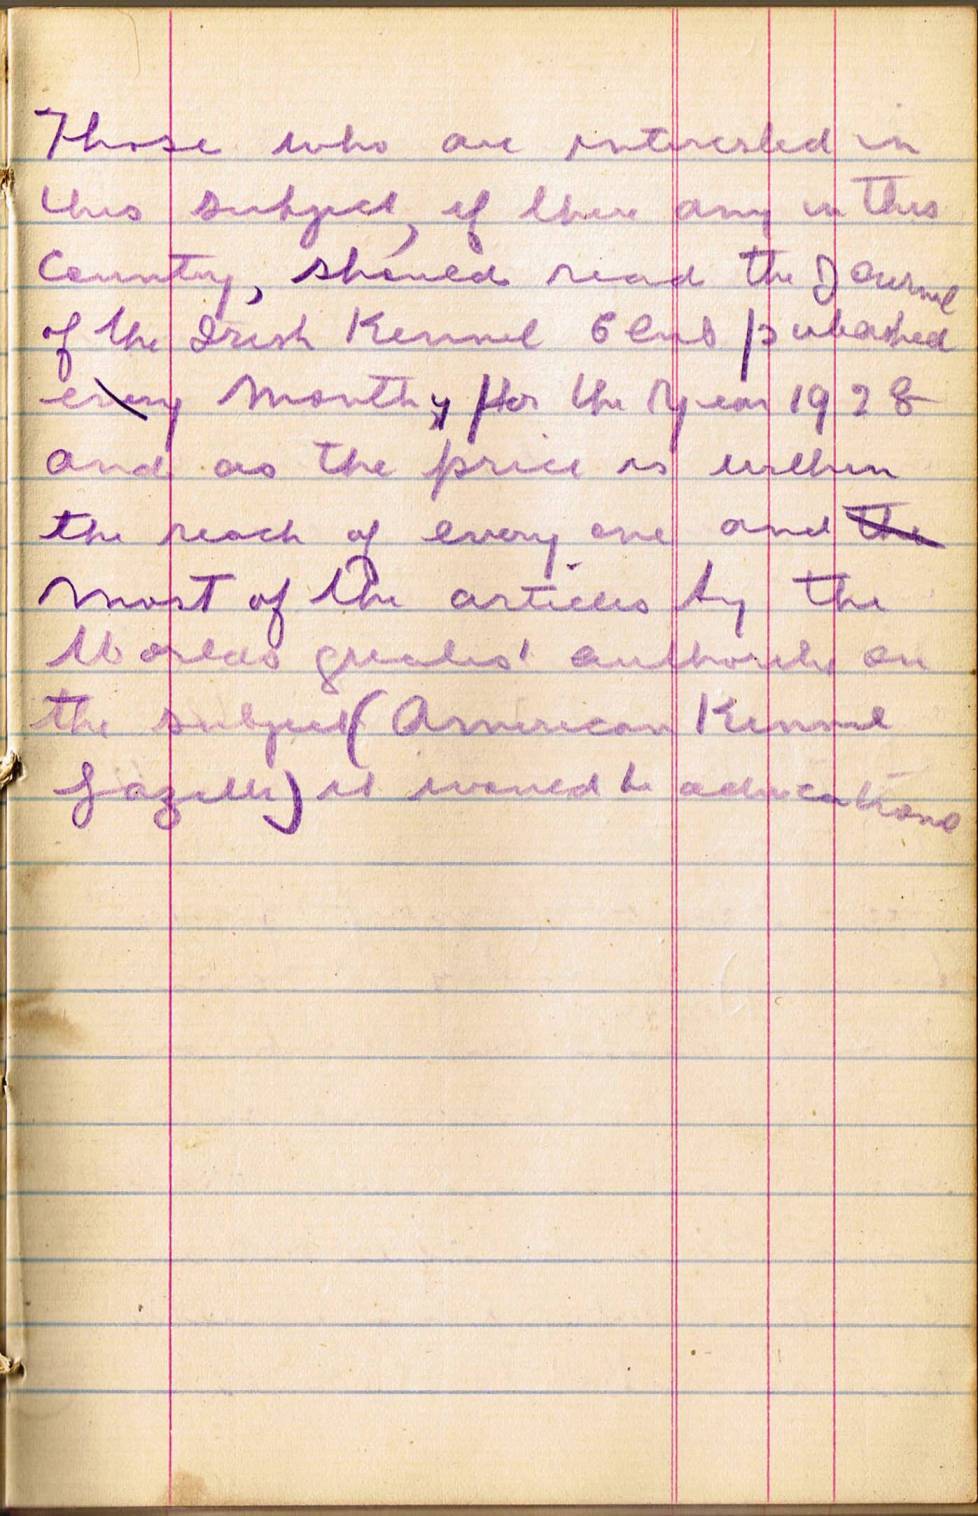 Those who are interested in
this subject, if there any in this
Country, should read the Journal
of the Irish Kennel Club published
every Monthly for the Year 1928
and as the price is within
the reach of every one and the
most of the articles by the
Worlds greatest authority on
the subject (American Kennel
Gazette) it would be educational